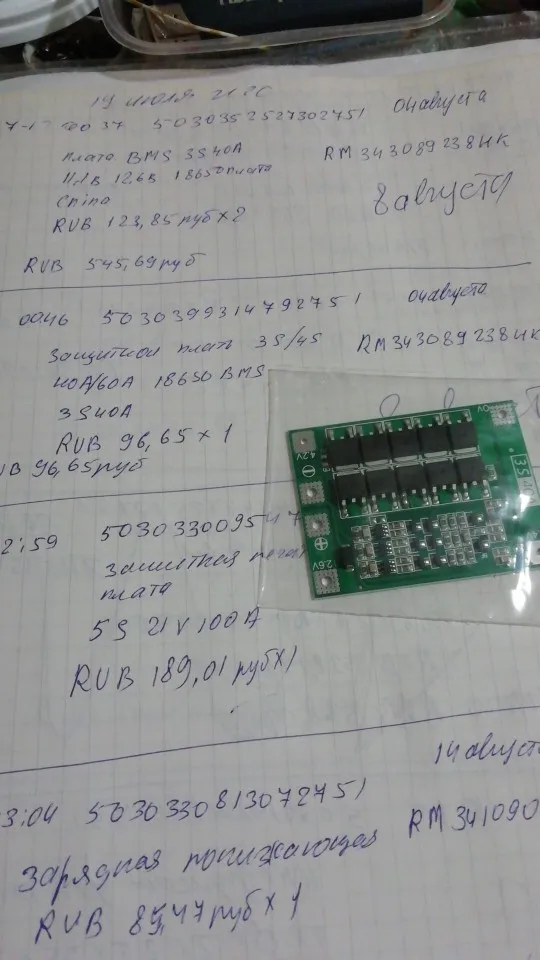 19 июля 2120
5030352527302751 04 августа
плата BMS 3S40A RM343089238HK
12.6В 18650 плата
China 8 августа
RUB 123,85 руб x 2
RUB 545,69 руб
00:46 5030399314792751 04 августа
Защитной плать 3S/4S RM343089238HK
40A/60A 18650 BMS
3S40A
RUB 96,65 x 1
96,65 руб
4.2V
3S
2.6V
2:59 5030330095
Защитная
плата
5S 21V 100A
RUB 189,01 руб x 1
14 август
3:04 5030330813072751
Зарядная понижающая RM341090
RUB 85,47 руб x 1